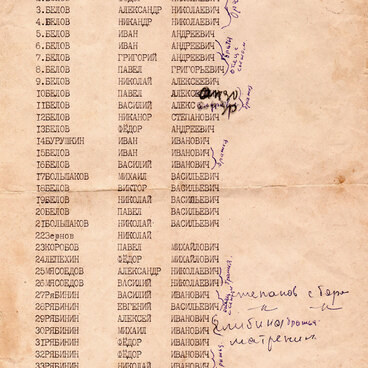 3.БЕЛОВ АЛЕКСАНДР НИКОЛАЕВИЧ
4.БЕЛОВ НИКАНДР НИКОЛАЕВИЧ
5.БЕЛОВ ИВАН АНДРЕЕВИЧ
6.БЕЛОВ ИВАН АНДРЕЕВИЧ
7.БЕЛОВ ГРИГОРИЙ АНДРЕЕВИЧ
8.БЕЛОВ ПАВЕЛ ГРИГОРЬЕВИЧ
9.БЕЛОВ НИКОЛАЙ АЛЕКСЕЕВИЧ
10БЕЛОВ ПАВЕЛ
11БЕЛОВ ВАСИЛИЙ
12БЕЛОВ НИКАНОР СТЕПАНОВИЧ
13БЕЛОВ ФЁДОР АНДРЕЕВИЧ
14БУРУШКИН ИВАН ИВАНОВИЧ
15БЕЛОВ ИВАН ИВАНОВИЧ
16БЕЛОВ ВАСИЛИЙ ИВАНОВИЧ братья
17БОЛЬШАКОВ МИХАИЛ ВАСИЛЬЕВИЧ
18БЕЛОВ ВИКТОР ВАСИЛЬЕВИЧ
19БЕЛОВ НИКОЛАЙ ВАСИЛЬЕВИЧ
20БЕЛОВ ПАВЕЛ ВАСИЛЬЕВИЧ
21БОЛЬШАКОВ НИКОЛАЙ ВАСИЛЬЕВИЧ
22Зернов НИКОЛАЙ
23КОРОБОВ ПАВЕЛ МИХАЙЛОВИЧ
24ЛЕПЕХИН ФЁДОР МИХАЙЛОВИЧ
25МЯСОЕДОВ АЛЕКСАНДР НИКОЛАЕВИЧ
26МЯСОЕДОВ ВАСИЛИЙ НИКОЛАЕВИЧ
27РЯБИНИН ВАСИЛИЙ ИВАНОВИЧ степанов
28РЯБИНИН ЕВГЕНИЙ ВАСИЛЬЕВИЧ
29РЯБИНИН АЛЕКСЕЙ ИВАНОВИЧ
30РЯБИНИН МИХАИЛ ИВАНОВИЧ
31РЯБИНИН ФЁДОР ИВАНОВИЧ
32РЯБИНИН ФЁДОР ИВАНОВИЧ
33РЯБИНИН НИКОЛАЙ ИВАНОВИЧ